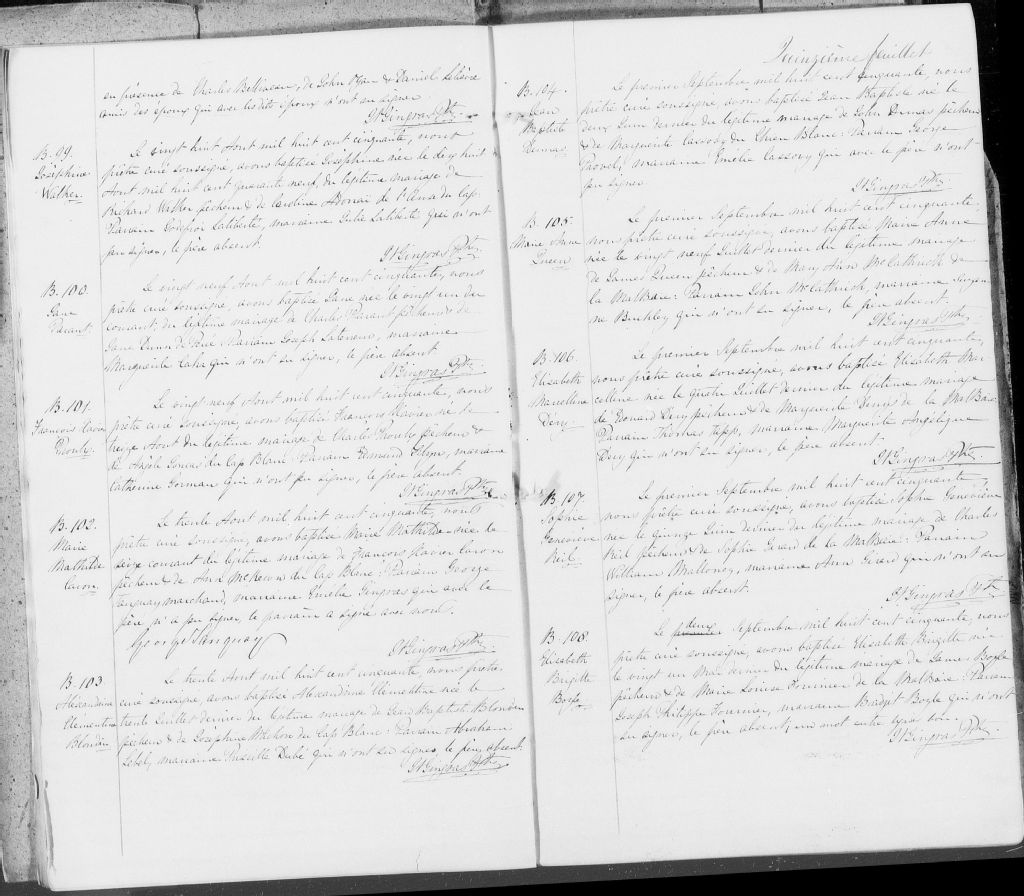 en présence de Charles Béliveau, de John Ryan & Daniel Lelièvre
amis des époux qui avec les dits époux n'ont su signer.
Gingras Ptre.
B. 99.
Joséphine
Walker.
Le vingt huit Aout mil huit cent cinquante, nous
prêtre curé soussigné, avons baptisé Joséphine née le dix huit
Aout mil huit cent quarante neuf, du légitime mariage de
Richard Walker pêcheur & de Caroline du Cap.
Parrain Godefroi Laliberté, marraine Julie Laliberté qui n'ont
pu signer, le père absent.
Gingras Ptre.
B. 100.
Jane
Parant.
Le vingt neuf Aout mil huit cent cinquante, nous
prêtre curé soussigné, avons baptisé Jane née le vingt un du
courant, du légitime mariage de Charles Parant pêcheur & de
Jane Parrain Joseph marraine
Marguerite qui n'ont su signer, le père absent.
Gingras Ptre.
B. 101.
François Xavier
Le vingt neuf Aout mil huit cent cinquante, nous
prêtre curé soussigné, avons baptisé François Xavier né le
treize Aout du légitime mariage de Charles pêcheur &
de Angèle du Cap Blanc: Parrain Edmund Flynn, marraine
Catherine Gorman qui n'ont pu signer, le père absent.
Gingras Ptre.
B. 102.
Marie
Mathilde
Caron.
Le trente Aout mil huit cent cinquante, nous
prêtre curé soussigné, avons baptisé Marie Mathilde née le
seize courant du légitime mariage de François Xavier Caron
pêcheur & de Ann McKeown du Cap Blanc: Parrain George
Tanguay marchand, marraine Emélie Gingras qui avec le
père n'a pu signer, le parrain a signé avec nous.
George Tanguay
Gingras Ptre.
B. 103
Alexandrine
Clémentine
Blondin
Le trente Aout mil huit cent cinquante, nous prêtre
curé soussigné avons baptisé Alexandrine Clémentine née le
trente Juillet dernier du légitime mariage de Jean Baptiste Blondin
pêcheur & de Joséphine du Cap Blanc: Parrain Abraham
Lebel, marraine Priscille Dubé qui n'ont su signer, le père absent.
Gingras Ptre.
Quinzième feuillet
B. 104.
Jean
Baptiste
Dumas
Le premier Septembre mil huit cent cinquante, nous
prêtre curé soussigné, avons baptisé Jean Baptiste né le
deux Juin dernier du légitime mariage de John Dumas pêcheur
& de Marguerite Cassody du Cap Blanc: Parrain George
marraine Emélie Cassody qui avec le père n'ont
pu signer.
Gingras Ptre.
B. 105.
Marie Anne
Queen
Le premier Septembre mil huit cent cinquante
nous prêtre curé soussigné, avons baptisé Marie Anne
née le vingt neuf Juillet dernier du légitime mariage
de James Queen pêcheur & de Mary Ann de
la Malbaie: Parrain John marraine
qui n'ont su signer, le père absent.
Gingras Ptre.
B. 106.
Elisabeth
Marcelline
Déry.
Le premier Septembre mil huit cent cinquante,
nous prêtre curé soussigné, avons baptisé Elisabeth Mar
celline née le quatre Juillet dernier du légitime mariage
de Léonard Déry pêcheur & de Marguerite de la Malbaie:
Parrain Thomas marraine Marguerite Angélique
Déry qui n'ont su signer, le père absent.
Gingras Ptre.
B. 107
Sophie
Geneviève
Neil.
Le premier Septembre mil huit cent cinquante
nous prêtre curé soussigné, avons baptisé Sophie Geneviève
née le quinze Juin dernier du légitime mariage de Charles
Neil pêcheur & de Sophie Girard de la Malbaie: Parrain
William Malloney, marraine Ann Girard qui n'ont su
signer, le père absent.
Gingras Ptre.
B. 108.
Elisabeth
Brigitte
Boyle
Le deux Septembre mil huit cent cinquante, nous
prêtre curé soussigné, avons baptisé Elisabeth Brigitte née
le vingt un Mai dernier du légitime mariage de James Boyle
pêcheur & de Marie Louise Fournier de la Malbaie: Parrain
Joseph Philippe Fournier, marraine Bridget Boyle qui n'ont
su signer, le père absent, un mot entre ligne bon.
Gingras Ptre.